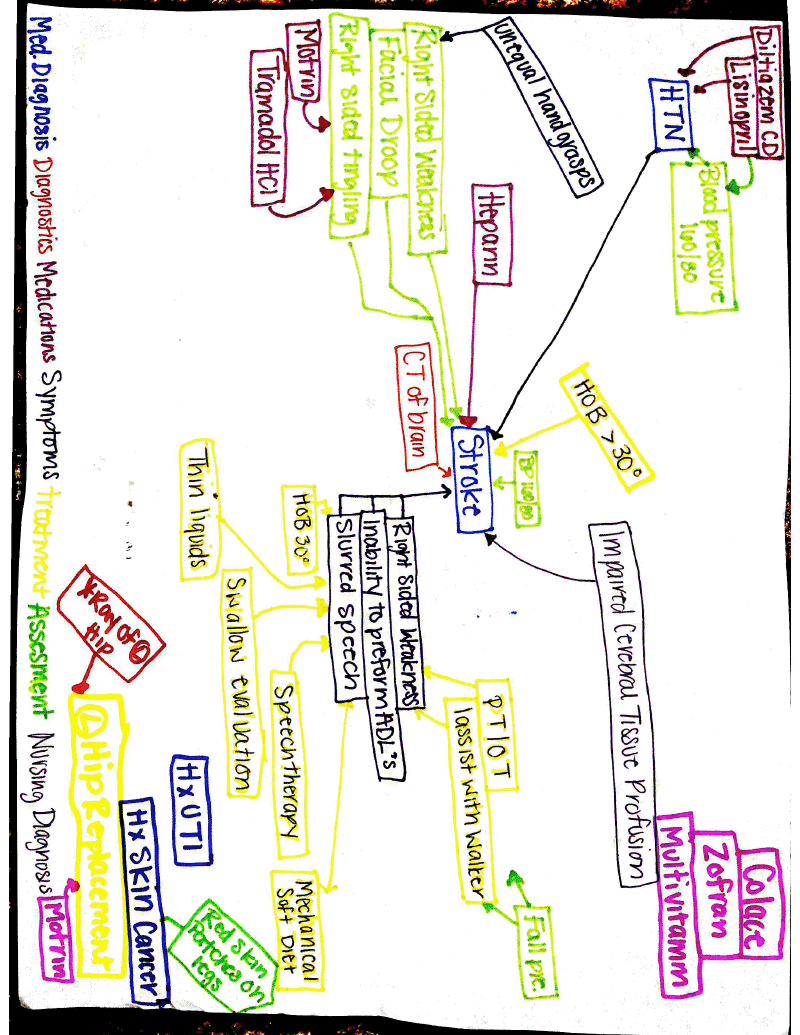 Diltiazem CD
Lisinopril
HTN
Blood pressure
160/80
unequal handgrasps
Right Sided Weakness
Facial Droop
Right sided tingling
Motrin
Tramadol HCl
Heparin
CT of brain
Stroke
HOB > 30°
BP 160/80
Impaired Cerebral Tissue Profusion
Colace
Zofran
Multivitamin
Right Sided Weakness
Inability to preform ADL's
Slurred Speech
HOB 30°
Thin liquids
Swallow evaluation
Speech therapy
Mechanical
Soft Diet
PT/OT
1 assist with walker
Fall pre.
X-Ray of Ⓛ
Hip
Ⓛ Hip Replacement
Hx UTI
Hx Skin Cancer
Red skin
Patches on
legs
Motrin
Med. Diagnosis Diagnostics Medications Symptoms treatment Assesment Nursing Diagnosis